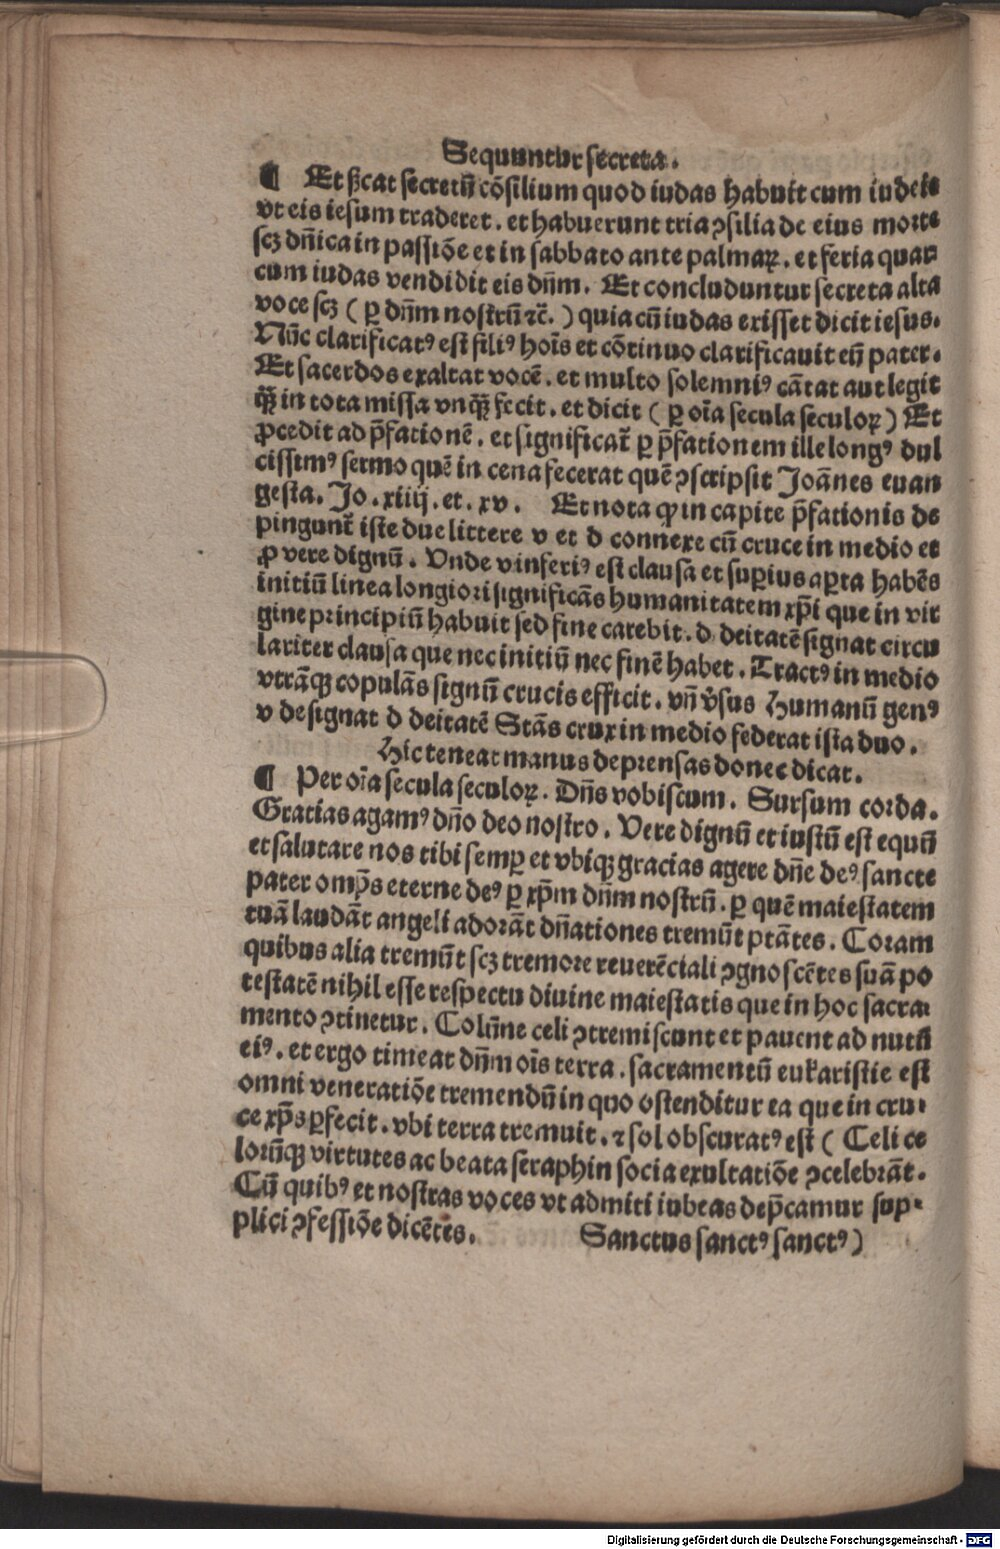 Sequuntur secreta.
¶ Et ſꝫcat secretū cōsilium quod iudas habuit cum iudeis
vt eis iesum traderet. et habuerunt tria ꝯsilia de eius morte
scꝫ dn̄ica in passiōe et in sabbato ante palmaꝝ. et feria quar
cum iudas vendidit eis dn̄m. Et concluduntur secreta alta
voce scꝫ ( ꝑ dn̄m nostrū ⁊c̄. ) quia cū iudas exisset dicit iesus.
Nūc clarificatꝰ est filiꝰ hoīs et cōtinuo clarificauit eū pater.
Et sacerdos exaltat vocē. et multo solemniꝰ cātat aut legit
q̄ꝫ in tota missa vnq̄ꝫ fecit. et dicit ( ꝑ oīa secula seculoꝝ ) Et
ꝓcedit ad p̄fationē. et significat̄ ꝑ p̄fationem ille longꝰ dul
cissimꝰ sermo quē in cena fecerat quē ꝯscripsit Joānes euan
gesta. Jo. xiiij. et. xv. Et nota ꝙ in capite p̄fationis de
pingunt̄ iste due littere v et d connexe cū cruce in medio et
ꝓ vere dignū. Vnde v inferiꝰ est clausa et suꝑius aꝑta habēs
initiū linea longiori significās humanitatem xp̄i que in vir
gine principiū habuit sed fine carebit. d deitatē signat circu
lariter clausa que nec initiū nec finē habet. Tractꝰ in medio
vtrāqꝫ copulās signū crucis efficit. vn̄ v̄sus Humanū genꝰ
v designat d deitatē Stās crux in medio federat ista duo.
Hic teneat manus deprensas donec dicat.
¶ Per oīa secula seculoꝝ. Dn̄s vobiscum. Sursum corda.
Gracias agamꝰ dn̄o deo nostro. Vere dignū et iustū est equū
et salutare nos tibi semꝑ et vbiqꝫ gracias agere dn̄e deꝰ sancte
pater omp̄s eterne deꝰ ꝑ xp̄m dn̄m nostrū. ꝑ quē maiestatem
tuā laudāt angeli adorāt dn̄ationes tremūt ptātes. Coram
quibus alia tremūt scꝫ tremore reuerēciali ꝯgnoscētes suā po
testatē nihil esse respectu diuine maiestatis que in hoc sacra
mento ꝯtinetur. Colūne celi ꝯtremiscunt et pauent ad nutū
eiꝰ. et ergo timeat dn̄m oīs terra. sacramentū eukaristie est
omni veneratiōe tremendū in quo ostenditur ea que in cru⸗
ce xp̄s ꝑfecit. vbi terra tremuit. ⁊ sol obscuratꝰ est ( Celi ce
lorūqꝫ virtutes ac beata seraphin socia exultatiōe ꝯcelebrāt.
Cū quibꝰ et nostras voces vt admiti iubeas dep̄camur sup⸗
plici ꝯfessiōe dicētes. Sanctus sanctꝰ sanctꝰ )
Digitalisierung gefördert durch die Deutsche Forschungsgemeinschaft - DFG